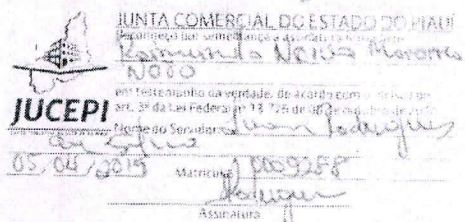 JUNTA COMERCIAL DO ESTADO DO PIAUÍ
Reconheço por semelhança a assinatura
Raimundo Neiva
Neto
em testemunho da verdade, de acordo com o
art. 3º da Lei Federal nº 13.726 de 08 de outubro de
JUCEPI
Nome do Servidor: Luan Rodrigues
da Silva
05, 04, 2019 Matrícula
Rodrigues
Assinatura